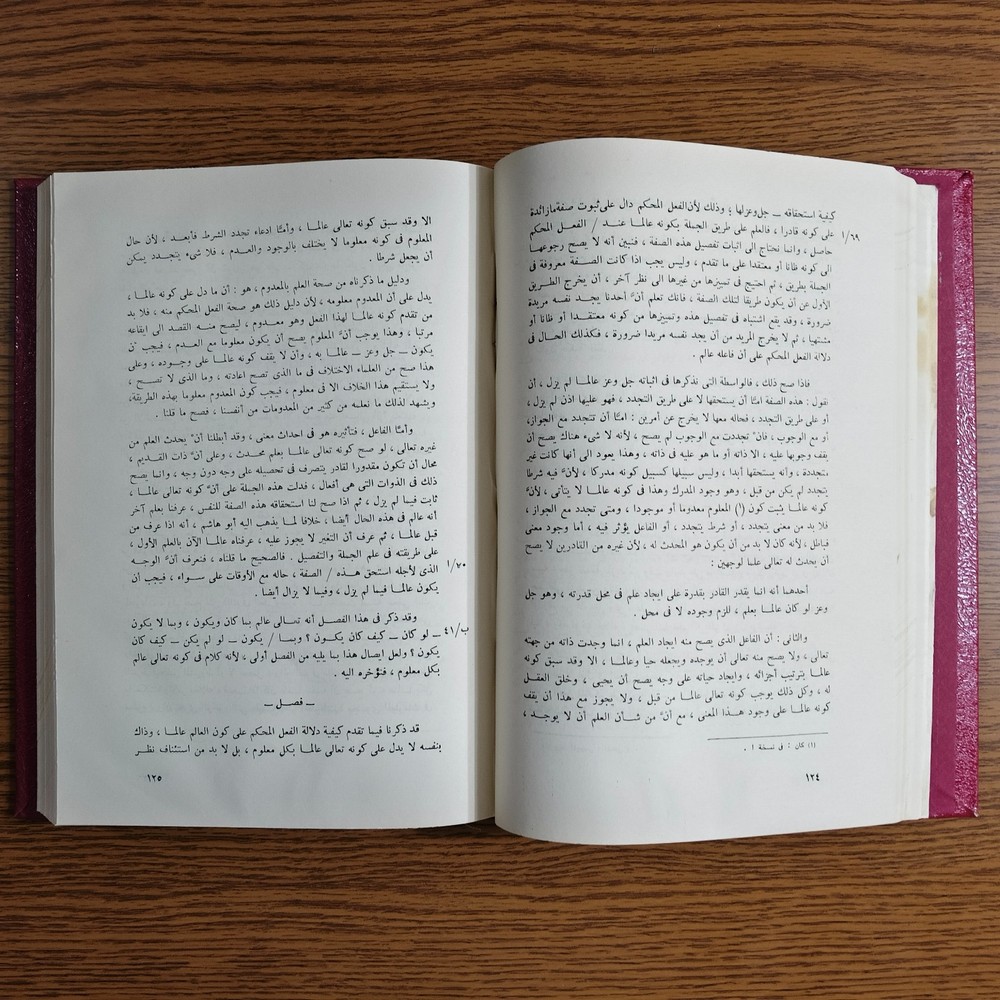 كيفية استحقاقه ــ جل وعز لها ؛ وذلك لأن الفعل المحكم دال على ثبوت صفة ما زائدة
١/٦٩ على كونه قادرا ، فالعلم على طريق الجملة بكونه عالما عند / الفعل المحكم
حاصل ، وانما نحتاج الى اثبات تفصيل هذه الصفة ، فتبين أنه لا يصح رجوعها
الى كونه ظانا أو معتقدا على ما تقدم ، وليس يجب اذا كانت الصفة معروفة فى
الجملة بطريق ، ثم احتيج فى تمييزها من غيرها الى نظر آخر ، أن يخرج الطريق
الأول عن أن يكون طريقا لتلك الصفة ، فانك تعلم أنّ أحدنا يجد نفسه مريدة
ضرورة ، وقد يقع اشتباه فى تفصيل هذه وتمييزها من كونه معتقدا أو ظانا أو
مشتهيا ، ثم لا يخرج المريد من أن يجد نفسه مريدا ضرورة ، فكذلك الحال فى
دلالة الفعل المحكم على أن فاعله عالم .
فاذا صح ذلك ، فالواسطة التى نذكرها فى اثباته جل وعز عالما لم يزل ، أن
نقول : هذه الصفة امّا أن يستحقها لا على طريق التجدد ، فهو عليها اذن لم يزل ،
أو على طريق التجدد ، فحاله معها لا يخرج عن أمرين : امّا أن تتجدد مع الجواز،
أو مع الوجوب ، فانْ تجددت مع الوجوب لم يصح ، لأنه لا شىء هناك يصح أن
يقف وجوبها عليه ، الا ذاته أو ما هو عليه فى ذاته ، وهذا يعود الى أنها كانت غير
متجددة ، وأنه يستحقها أبدا ، وليس سبيلها كسبيل كونه مدركا ، لأنّ فيه شرطا
يتجدد لم يكن من قبل ، وهو وجود المدرك وهذا فى كونه عالما لا يتأتى ، لأنّ
كونه عالما يثبت كون (١) المعلوم معدوما أو موجودا ، ومتى تجدد مع الجواز ،
فلا بد من معنى يتجدد ، أو شرط يتجدد ، أو الفاعل يؤثر فيه ، أما وجود معنى
فباطل ، لأنه كان لا بد من أن يكون هو المحدث له ، لأن غيره من القادرين لا يصح
أن يحدث له تعالى علما لوجهين :
أحدهما أنه انما يقدر القادر بقدرة على ايجاد علم فى محل قدرته ، وهو جل
وعز لو كان عالما بعلم ، للزم وجوده لا فى محل .
والثانى : أن الفاعل الذى يصح منه ايجاد العلم ، انما وجدت ذاته من جهته
تعالى ، ولا يصح منه تعالى أن يوجده ويجعله حيا وعالما ، الا وقد سبق كونه
عالما بترتيب أجزائه ، وايجاد حياته على وجه يصح أن يحيى ، وخلق العقل
له ، وكل ذلك يوجب كونه تعالى عالما من قبل ، ولا يجوز مع هذا أن يقف
كونه عالما على وجود هذا المعنى ، مع أنّ من شأن العلم أن لا يوجد ،
(١) كان : فى نسخة ا .
١٢٤
الا وقد سبق كونه تعالى عالما ، وأمّا ادعاء تجدد الشرط فأبعد ، لأن حال
المعلوم فى كونه معلوما لا يختلف بالوجود والعدم ، فلا شىء يتجدد يمكن
أن يجعل شرطا .
ودليل ما ذكرناه من صحة العلم بالمعدوم ، هو : أن ما دل على كونه عالما ،
يدل على أن المعدوم معلومه ، لأن دليل ذلك هو صحة الفعل المحكم منه ، فلا بد
من تقدم كونه عالما لهذا الفعل وهو معدوم ، ليصح منه القصد الى ايقاعه
مرتبا ، وهذا يوجب أنّ المعلوم يصح أن يكون معلوما مع العدم ، فيجب أن
يكون ــ جل وعز ــ عالما به ، وأن لا يقف كونه عالما على وجوده ، وعلى
هذا صح من العلماء الاختلاف فى ما الذى تصح اعادته ، وما الذى لا تصح ،
ولا يستقيم هذا الخلاف الا فى معلوم ، فيجب كون المعدوم معلوما بهذه الطريقة،
ويشهد لذلك ما نعلمه من كثير من المعدومات من أنفسنا ، فصح ما قلنا .
وأمّا الفاعل ، فتأثيره هو فى احداث معنى ، وقد أبطلنا أنْ يحدث العلم من
غيره تعالى ، لو صح كونه تعالى عالما بعلم محدث ، وعلى أنّ ذات القديم ،
محال أن تكون مقدورا لقادر يتصرف فى تحصيله على وجه دون وجه ، وانما يصح
ذلك فى الذوات التى هى أفعال ، فدلت هذه الجملة على أنّ كونه تعالى عالما ،
ثابت فيما لم يزل ، ثم اذا صح لنا استحقاقه هذه الصفة للنفس ، عرفنا بعلم آخر
أنه عالم فى هذه الحال أيضا ، خلافا لما يذهب اليه أبو هاشم ، أنه اذا عرف من
قبل عالما ، ثم عرف أن التغير لا يجوز عليه ، عرفناه عالما الآن بالعلم الأول ،
على طريقته فى علم الجملة والتفصيل . فالصحيح ما قلناه ، فنعرف أنّ الوجه
١/٧٠ الذى لأجله استحق هذه / الصفة ، حاله مع الأوقات على سواء ، فيجب أن
يكون عالما فيما لم يزل ، وفيما لا يزال أيضا .
وقد ذكر فى هذا الفصل أنه تعالى عالم بما كان ويكون ، وبما لا يكون
ب/٤١ ــ لو كان ــ كيف كان يكون ؟ وبما / يكون ــ لو لم يكن ــ كيف كان
يكون ؟ ولعل ايصال هذا بما يليه من الفصل أولى ، لأنه كلام فى كونه تعالى عالم
بكل معلوم ، فنؤخره اليه .
ــ فصل ــ
قد ذكرنا فيما تقدم كيفية دلالة الفعل المحكم على كون العالم عالما ، وذاك
بنفسه لا يدل على كونه تعالى عالما بكل معلوم ، بل لا بد من استئناف نظر
١٢٥